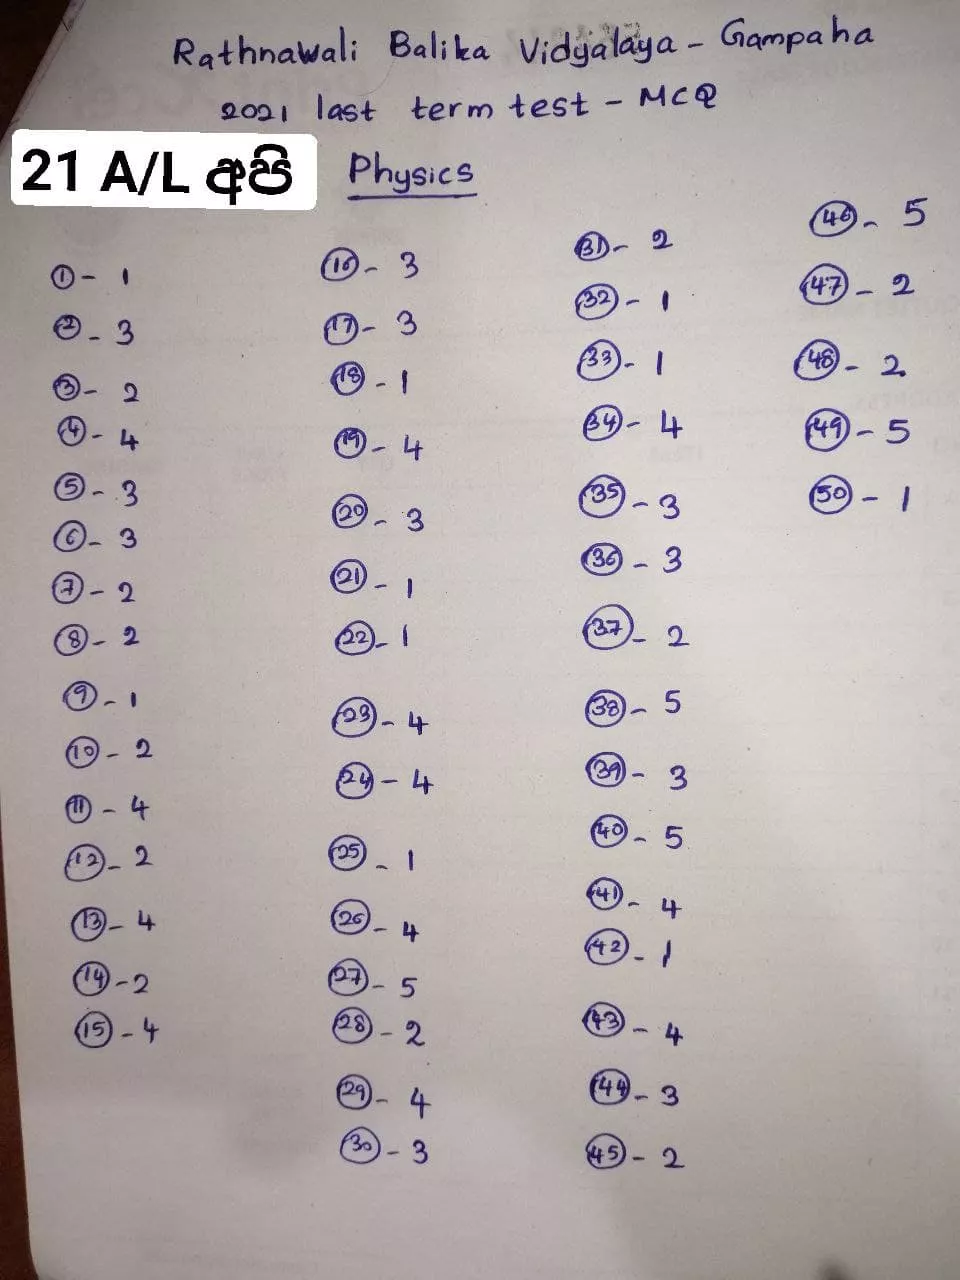 Rathnawali Balika Vidyalaya - Gampaha
2021 last term test - MCQ
21 A/L අපි
Physics
1 - 1
2 - 3
3 - 2
4 - 4
5 - 3
6 - 3
7 - 2
8 - 2
9 - 1
10 - 2
11 - 4
12 - 2
13 - 4
14 - 2
15 - 4
16 - 3
17 - 3
18 - 1
19 - 4
20 - 3
21 - 1
22 - 1
23 - 4
24 - 4
25 - 1
26 - 4
27 - 5
28 - 2
29 - 4
30 - 3
31 - 2
32 - 1
33 - 1
34 - 4
35 - 3
36 - 3
37 - 2
38 - 5
39 - 3
40 - 5
41 - 4
42 - 1
43 - 4
44 - 3
45 - 2
46 - 5
47 - 2
48 - 2
49 - 5
50 - 1